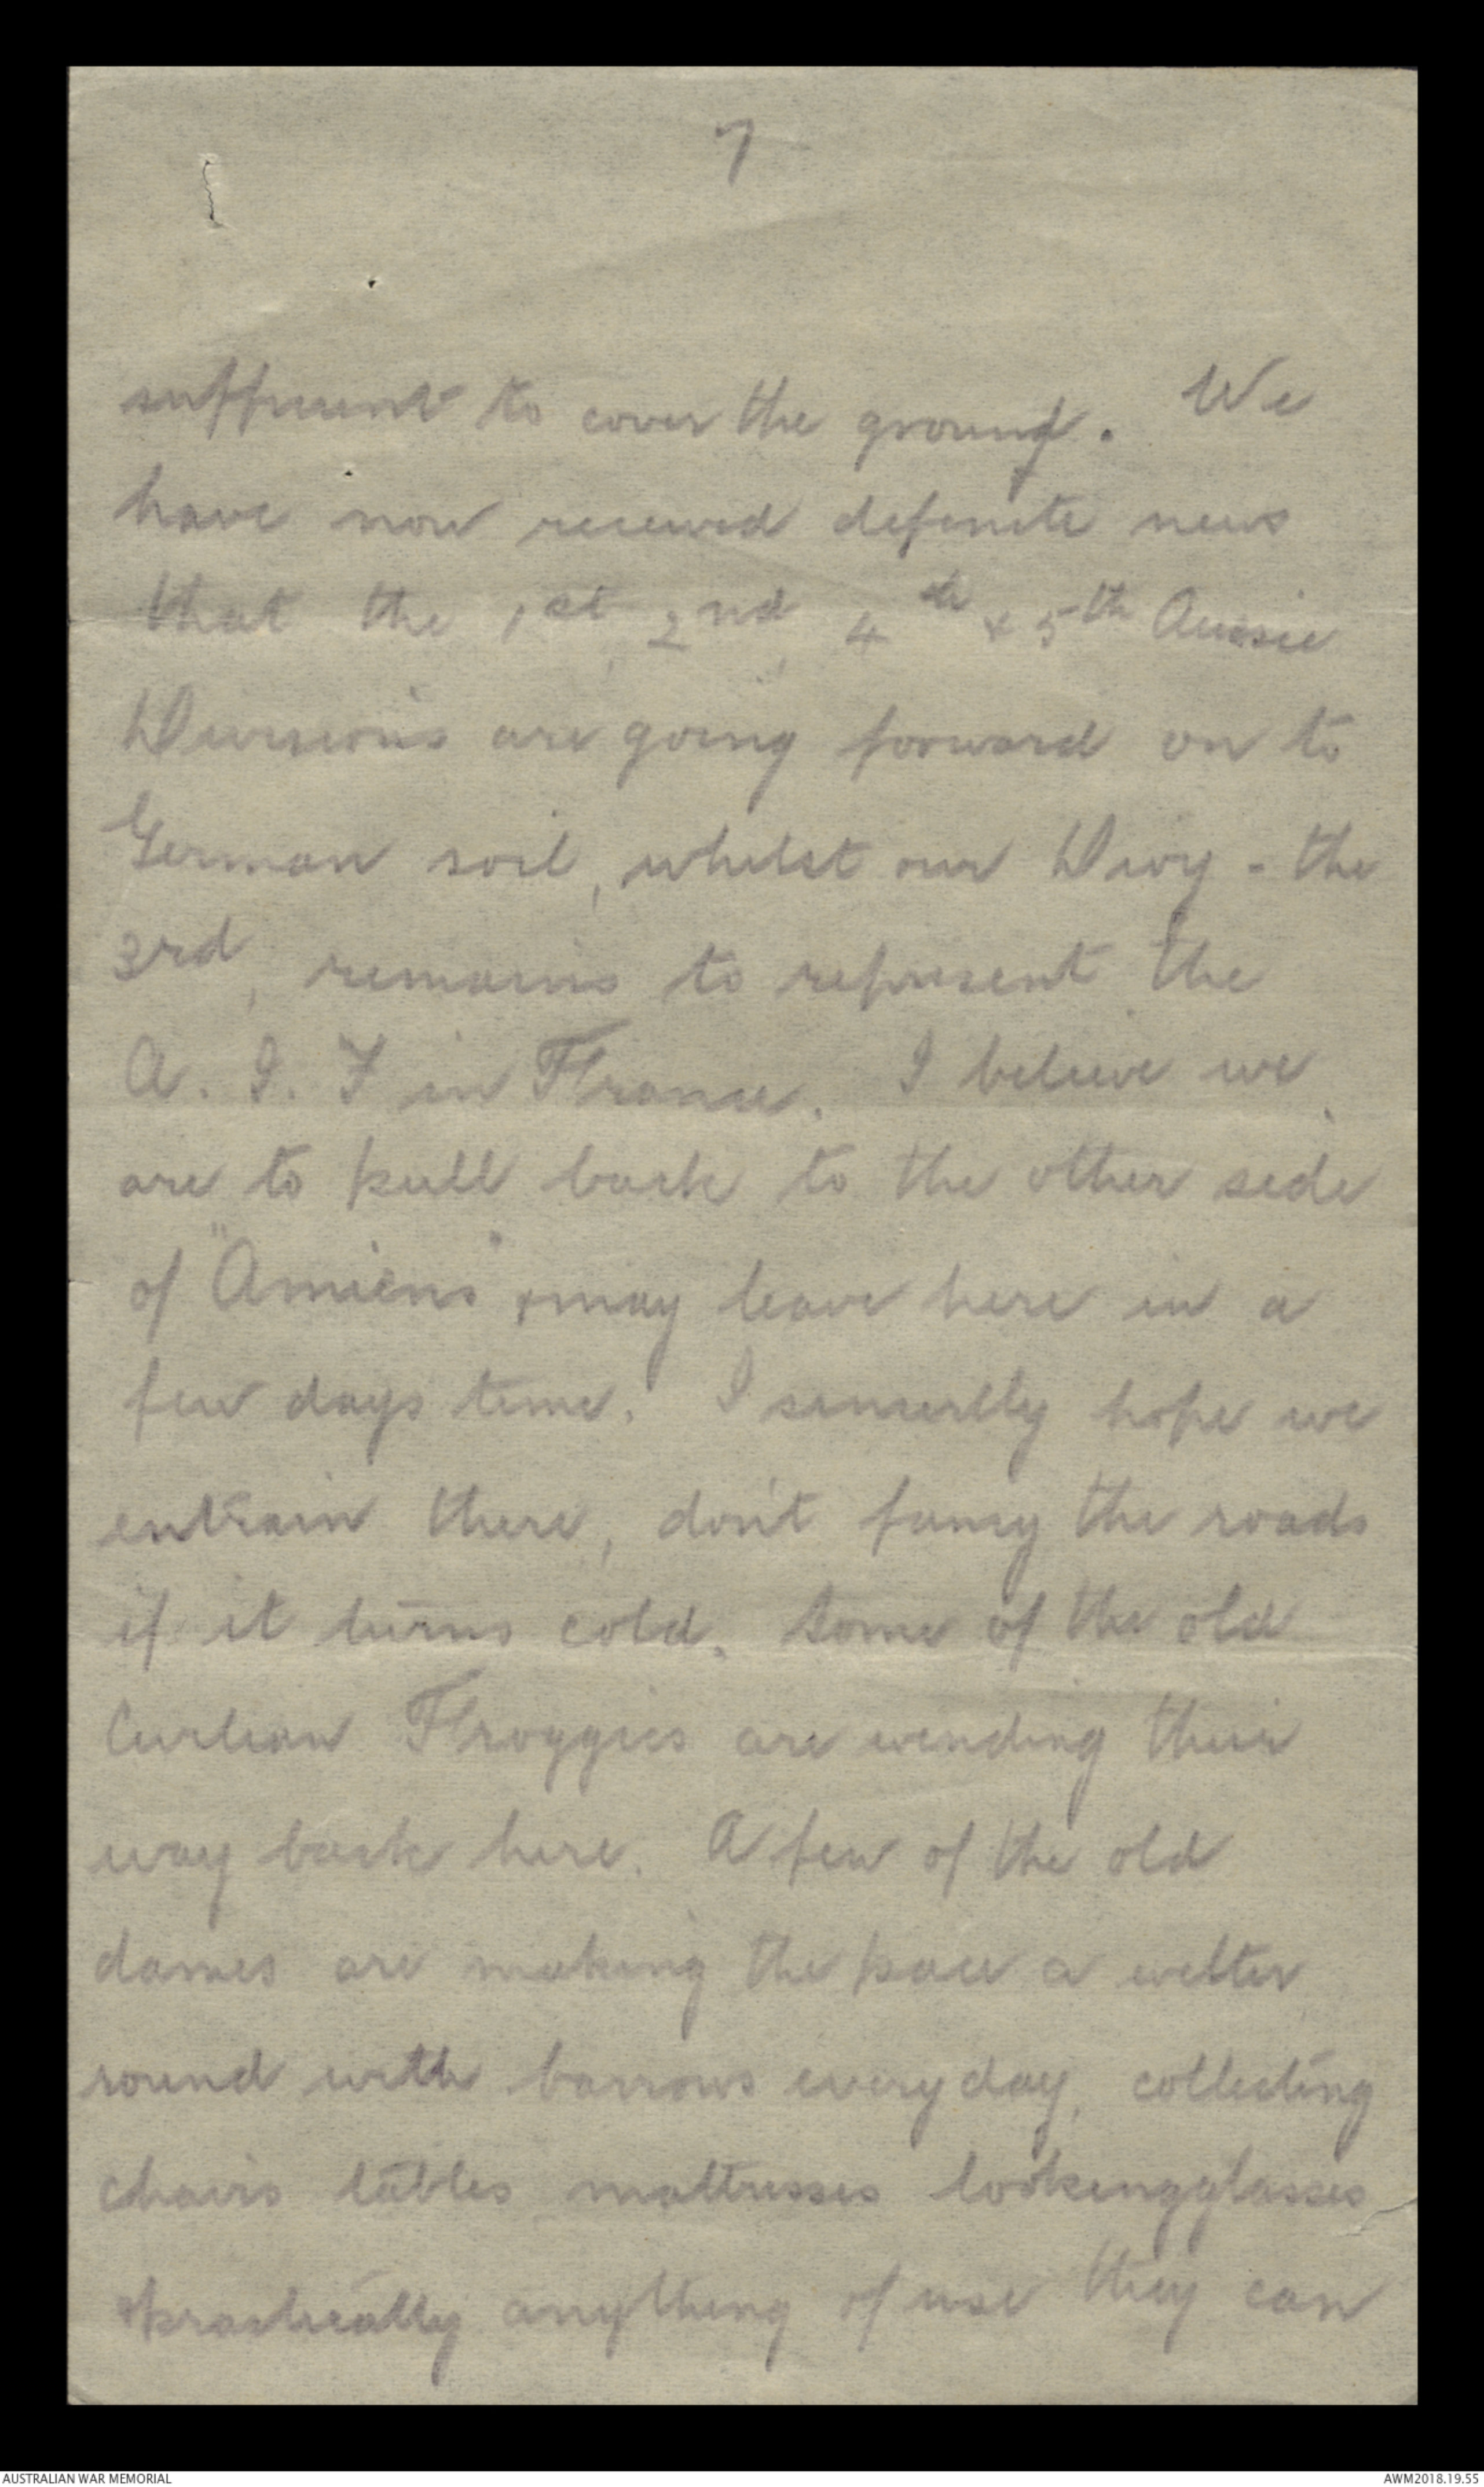 7
sufficient to cover the ground. We
have now received definite news
that the 1st, 2nd, 4th & 5th Aussie
Divisions are going forward on to
German soil, whilst our Divvy - the
3rd, remains to represent the
A. I. F in France. I believe we
are to pull back to the other side
of "Amiens" & may leave here in a
few days time. I sincerelly hope we
entrain there, don't fancy the roads
if it turns cold. Some of the old
Froggies are wending their
way back here. A few of the old
dames are making the pace a welter
round with barrows everyday, collecting
chairs tables mattresses lookingglasses
practically anything of use they can
AUSTRALIAN WAR MEMORIAL
AWM2018.19.55